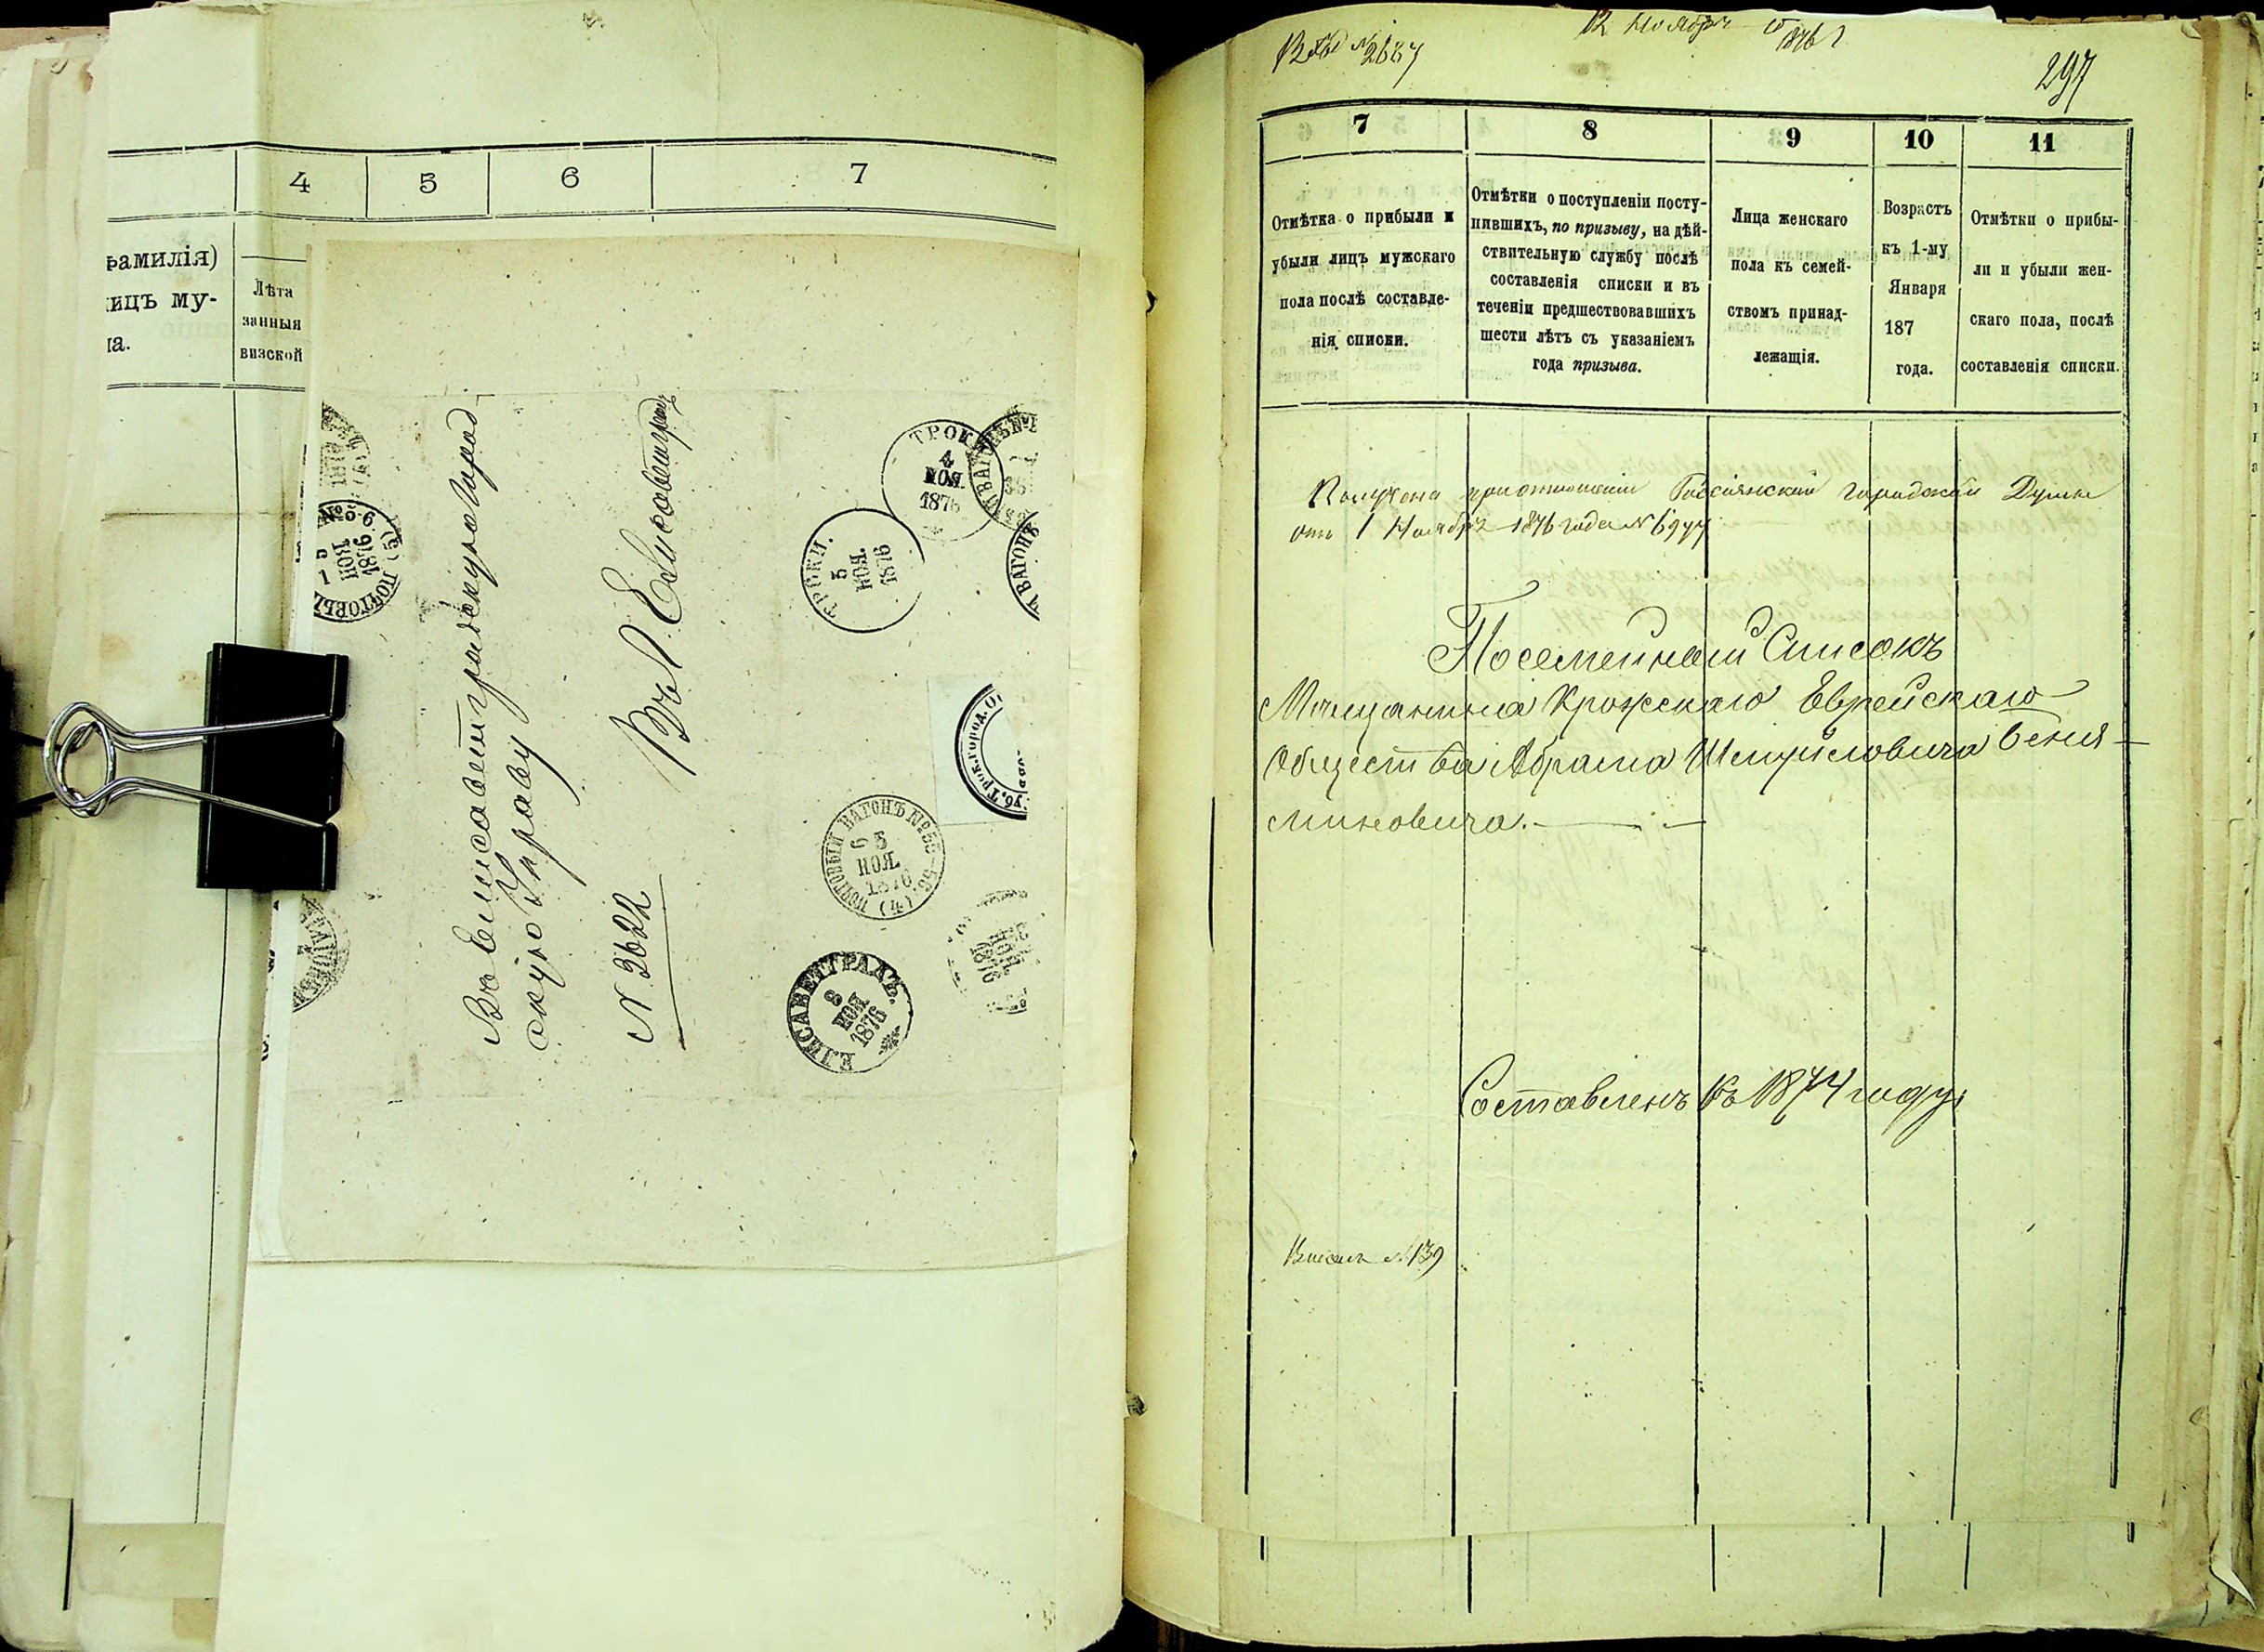 4 5 6 7
фамилія)
лицъ му-
на.
Лѣта
занныя
визской
Въ Елисаветградскую Город-
скую Управу
Въ Г. Елисаветградъ
N. 3622
№ 5-6
НОЯ
1876
(5)
ПОЧТОВЫ
ТРОКИ
4
НОЯ.
1876
ТРОКИ.
5
НОЯ.
1876
ВАГОНЪ
Тров. город.
ПОЧТОВЫЙ ВАГОНЪ № 55-56. (4)
5
НОЯ.
1876
ЕЛИСАВЕТГРАДЪ.
8
НОЯ
1876
НОЯ
1876
Вход № 2637
12 Ноября 1876 г
297
7 8 9 10 11
Отмѣтка о прибыли и
убыли лицъ мужскаго
пола послѣ составле-
нія списки.
Отмѣтки о поступленіи посту-
пившихъ, по призыву, на дѣй-
ствительную службу послѣ
составленія списки и въ
теченіи предшествовавшихъ
шести лѣтъ съ указаніемъ
года призыва.
Лица женскаго
пола къ семей-
ствомъ принад-
лежащія.
Возрастъ
къ 1-му
Января
187
года.
Отмѣтки о прибы-
ли и убыли жен-
скаго пола, послѣ
составленія списки.
Получена при отношеніи Россіенской городской Думы
отъ 1 Ноября 1876 года № 6977
Посемейный Списокъ
Мѣщанина Крожскаго Еврейскаго
Общества Абрама Шмуйловича Беня-
миновича.
Составленъ къ 1874 году
№ 139